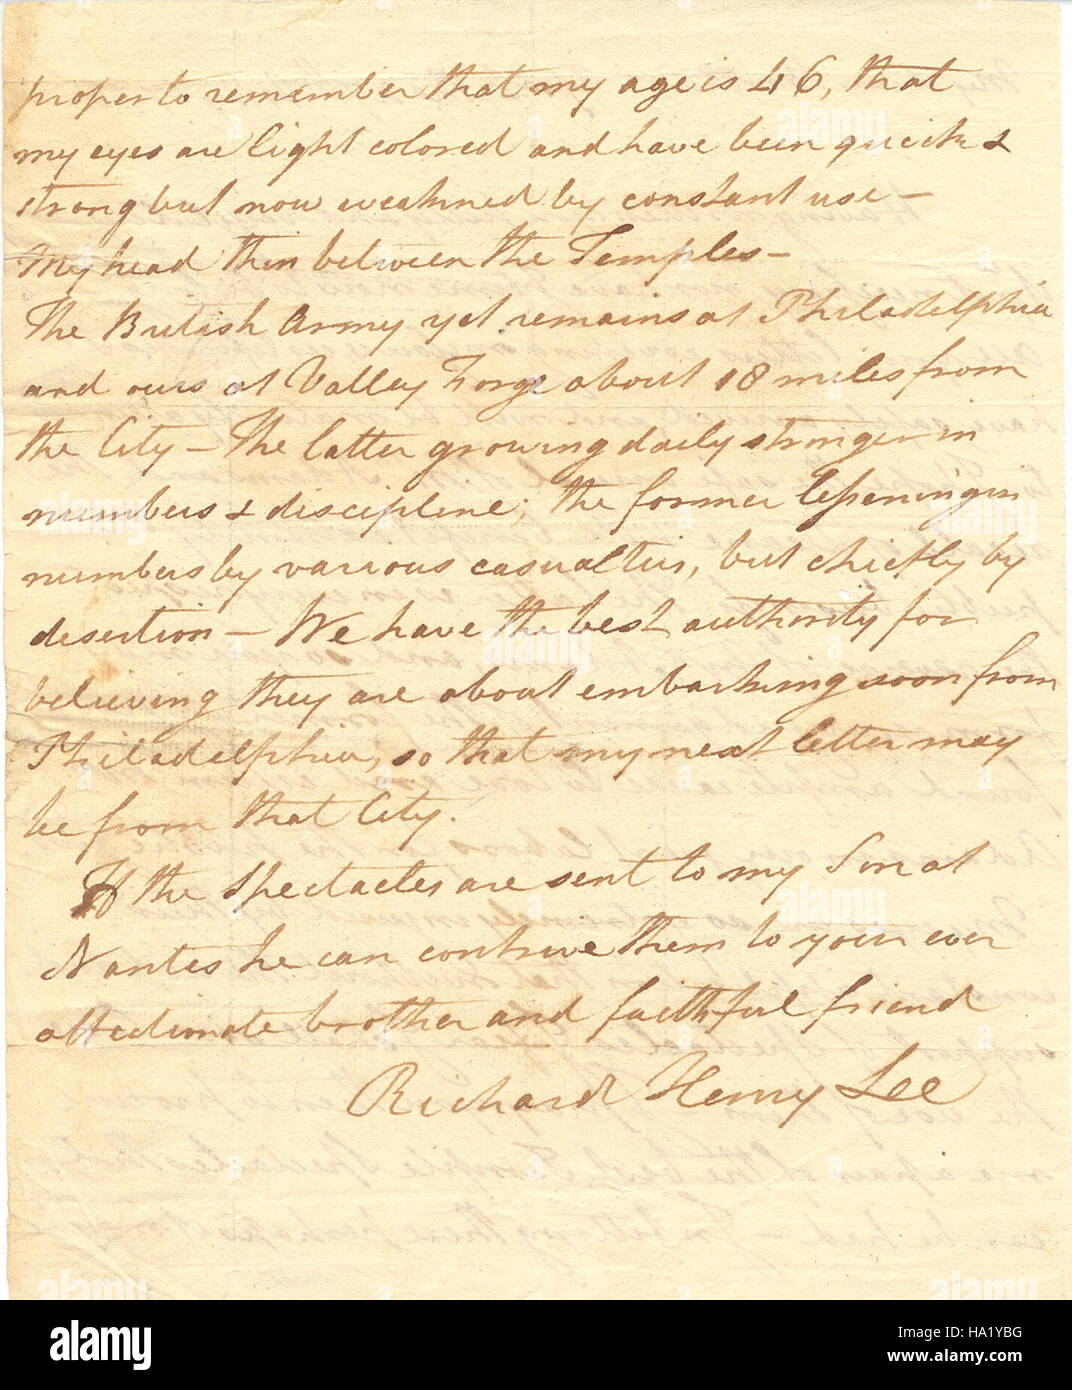 proper to remember that my age is 46, that
my eyes are light colored and have been quick &
strong but now weakned by constant use -
My head thin between the Temples -
The British Army yet remains at Philadelphia
and ours at Valley Forge about 18 miles from
the City - The latter growing daily stronger in
numbers & discipline; the former lessening in
numbers by various casualties, but chiefly by
desertion - We have the best authority for
believing they are about embarking soon from
Philadelphia, so that my next letter may
be from that City.
If the Spectacles are sent to my Son at
Nantes he can contrive them to your ever
affectionate brother and faithful friend
Richard Henry Lee
alamy
Image ID: HA1YBG
www.alamy.com